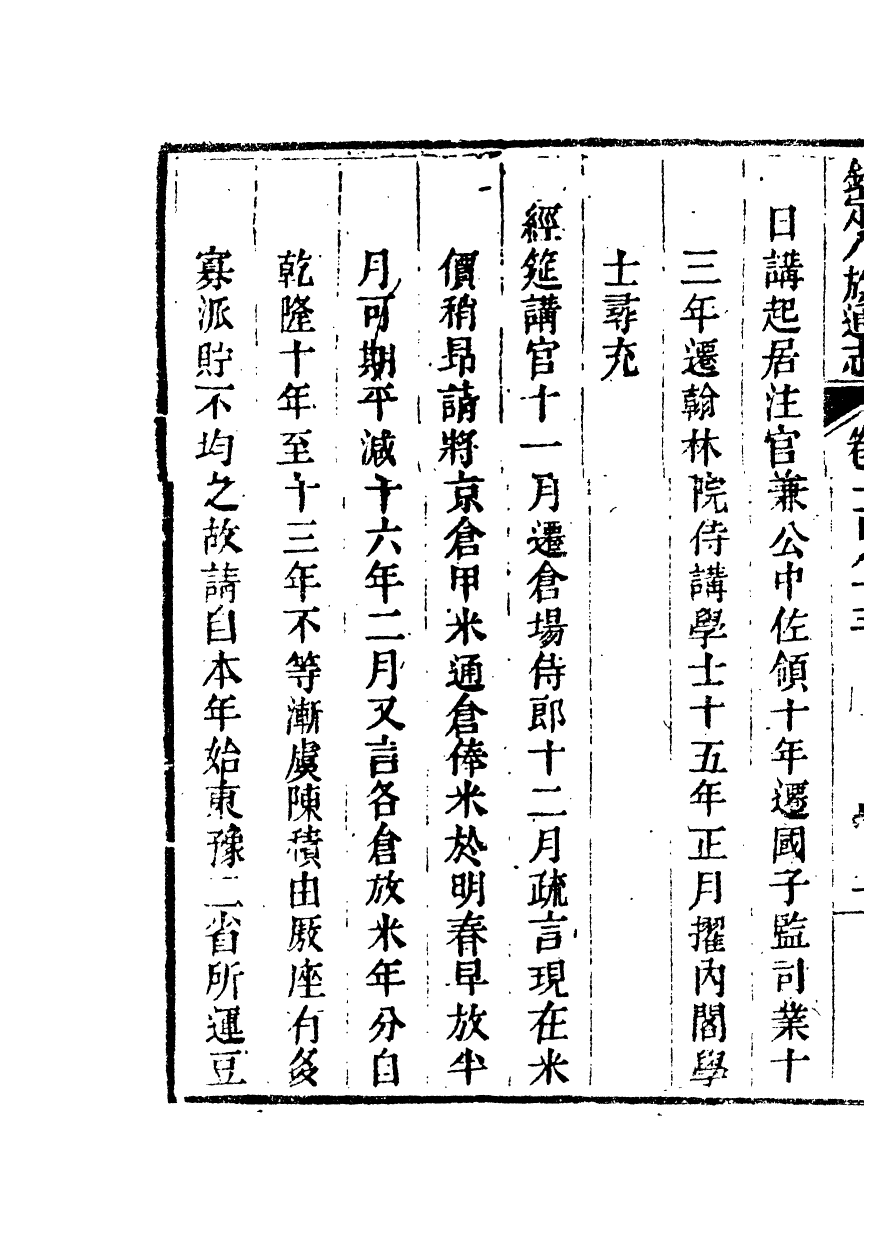 欽定八旗通志 卷一百八十三
日講起居注官兼公中佐領十年遷國子監司業十
三年遷翰林院侍講學士十五年正月擢內閣學
士尋充
經筵講官十一月遷倉場侍郎十二月疏言現在米
價稍昂請將京倉甲米通倉俸米於明春早放半
月可期平減十六年二月又言各倉放米年分自
乾隆十年至十三年不等漸虞陳積由厫座有多
寡派貯不均之故請自本年始東豫二省所運豆